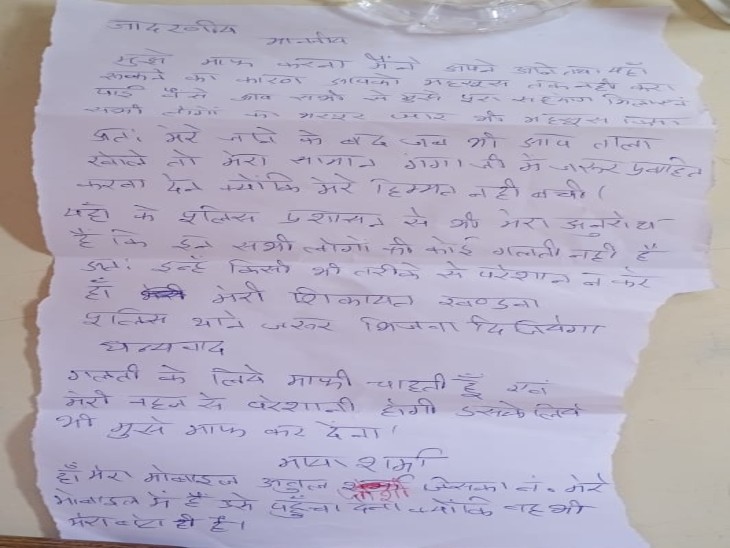 आदरणीय
माननीय
मुझे माफ करना मैंने अपने आने तथा यहाँ
रूकने का कारण आपको महसूस तक नहीं करा
पाई वैसे आप सभी से मुझे पूरा सहयोग मिला एवं
सभी लोगों का भरपूर प्यार भी महसूस किया
अतः मेरे जाने के बाद जब भी आप ताला
खोले तो मेरा सामान गंगा जी में जरूर प्रवाहित
करवा देना क्योंकि मेरे हिम्मत नही बची।
यहाँ के पुलिस प्रशासन से भी मेरा अनुरोध
है कि इन सभी लोगों की कोई गलती नही है
अतः इन्हें किसी भी तरीके से परेशान न करे
हाँ मेरी शिकायत खण्डवा
पुलिस थाने जरूर भिजवा दिजियेगा
धन्यवाद
गलती के लिये माफी चाहती हूँ एवं
मेरी वहज से परेशानी होगी उसके लिये
भी मुझे माफ कर देना।
माया शर्मा
हाँ मेरा मोबाइल अतुल जोशी जिसका नं. मेरे
मोबाइल में है उसे पहुँचा देना क्योंकि वह भी
मेरा बेटा ही है।